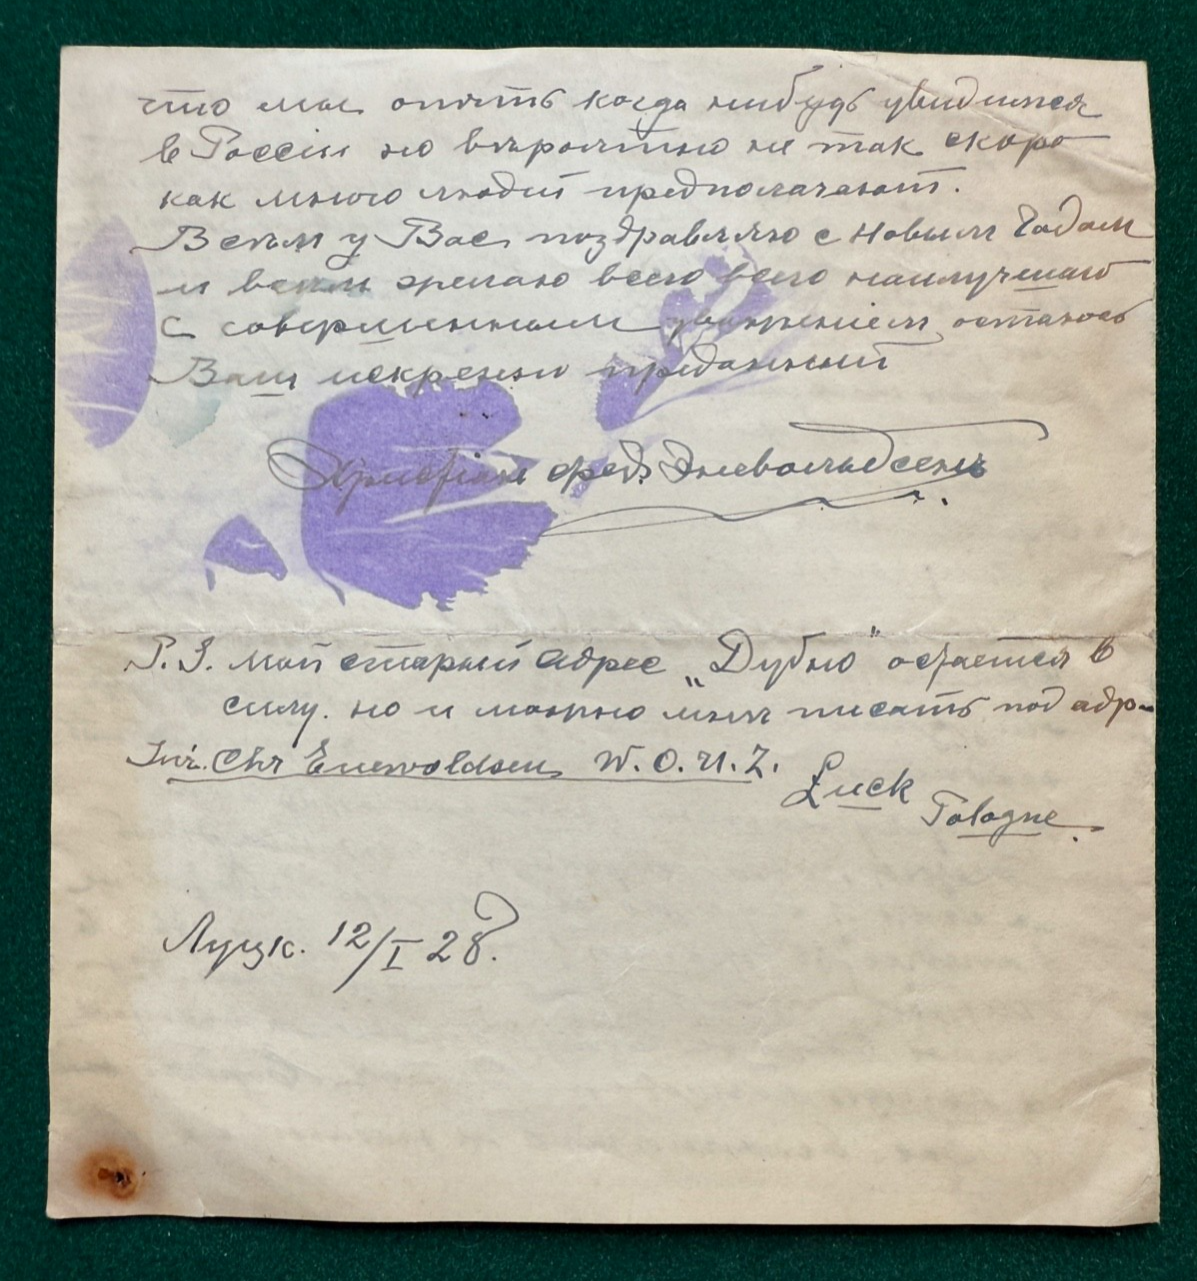 что мы опять когда нибудь увидимся
в Россіи но вѣроятно не так скоро
как много людей предполагают.
Всѣм у Вас поздравляю с новым Годом
и всѣм желаю всего всего наилучшаго
с совершенным уважением остаюсь
Ваш искренно преданный
Христіан фред. Эневольдсенъ
P.S. мой старый адрес „Дубно" остается в
силу. но и можно мнѣ писать под адр-
Inż. Chr Enewoldsen W.O.U.Z. Łuck
Pologne.
Луцк. 12/I 28.